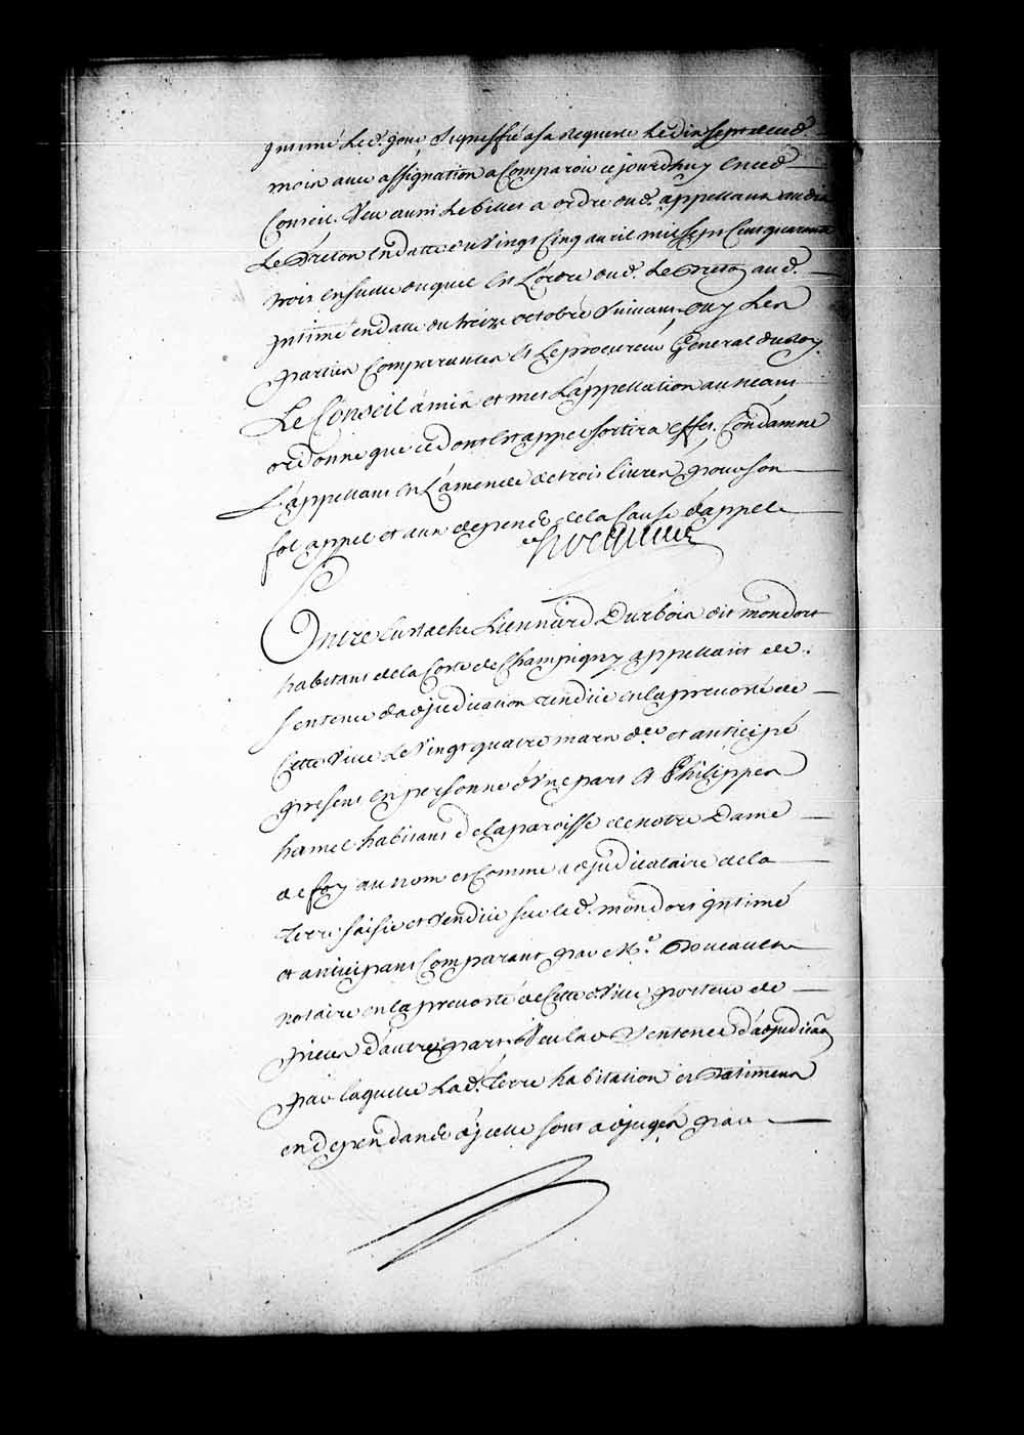 Intimé led. jour signiffié a sa requeste le dix sept dud.
mois avec assignation a comparoir cejourdhuy en ced.
Conseil. Veu aussi le billet a ordre dud. appellant aud.
le Breton en datte du vingt cinq avril mil sept cent quarante
trois ensuitte duquel est l'ordre dud. le Breton aud.
Intimé en datte du treize octobre suivant. ouy les
parties comparantes et le procureur General du Roy.
Le Conseil a mis et met l'appellation au neant
ordonne que ce dont est appel sortira effet. Condamne
L'appellant en l'amende de trois livres pour son
fol appel et aux depens de la cause d'appel
hocquart
Entre Eustache Liennard Durbois dit mondor
habitant de la Coste de Champigny appellant de
sentence d'adjudication rendüe en la prevosté de
Cette Ville le Vingt quatre mars d.er et anticipé
present en personne d'une part Et Philippes
hamel habitant de la paroisse de notre Dame
de foy au nom et comme adjudicataire de la
terre saisie et vendüe sur led. mondor intimé
et anticipant comparant par Me.
notaire en la prevosté de Cette Ville porteur de
pieces d'autre part. Veu lad. Sentence d'adjudicaon
par laquelle lad. terre habitation et Batimens
en dependans d'jcelle sont adjugés par